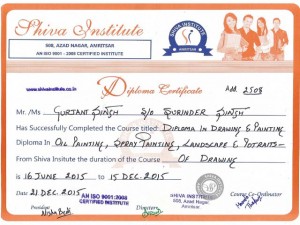 Shiva Institute
908, AZAD NAGAR, AMRITSAR
AN ISO 9001 : 2008 CERTIFIED INSTITUTE
SHIVA INSTITUTE
www.shivainstitute.co.in
Diploma Certificate
Add. 2508
Mr. /Ms GURJANT SINGH S/o SURINDER SINGH
Has Successfully Completed the Course titled DIPLOMA IN DRAWING & PAINTING
Diploma In OIL PAINTING, SPRAY PAINTING, LANDSCAPE & POTRAITS
From Shiva Institute the duration of the Course OF DRAWING
is 16 JUNE 2015 to 15 DEC. 2015
Date 21 DEC. 2015
AN ISO 9001:2008
CERTIFIED INSTITUTE
SHIVA INSTITUTE
908, Azad Nagar,
Amritsar
Course Co-Ordinator
President
Director